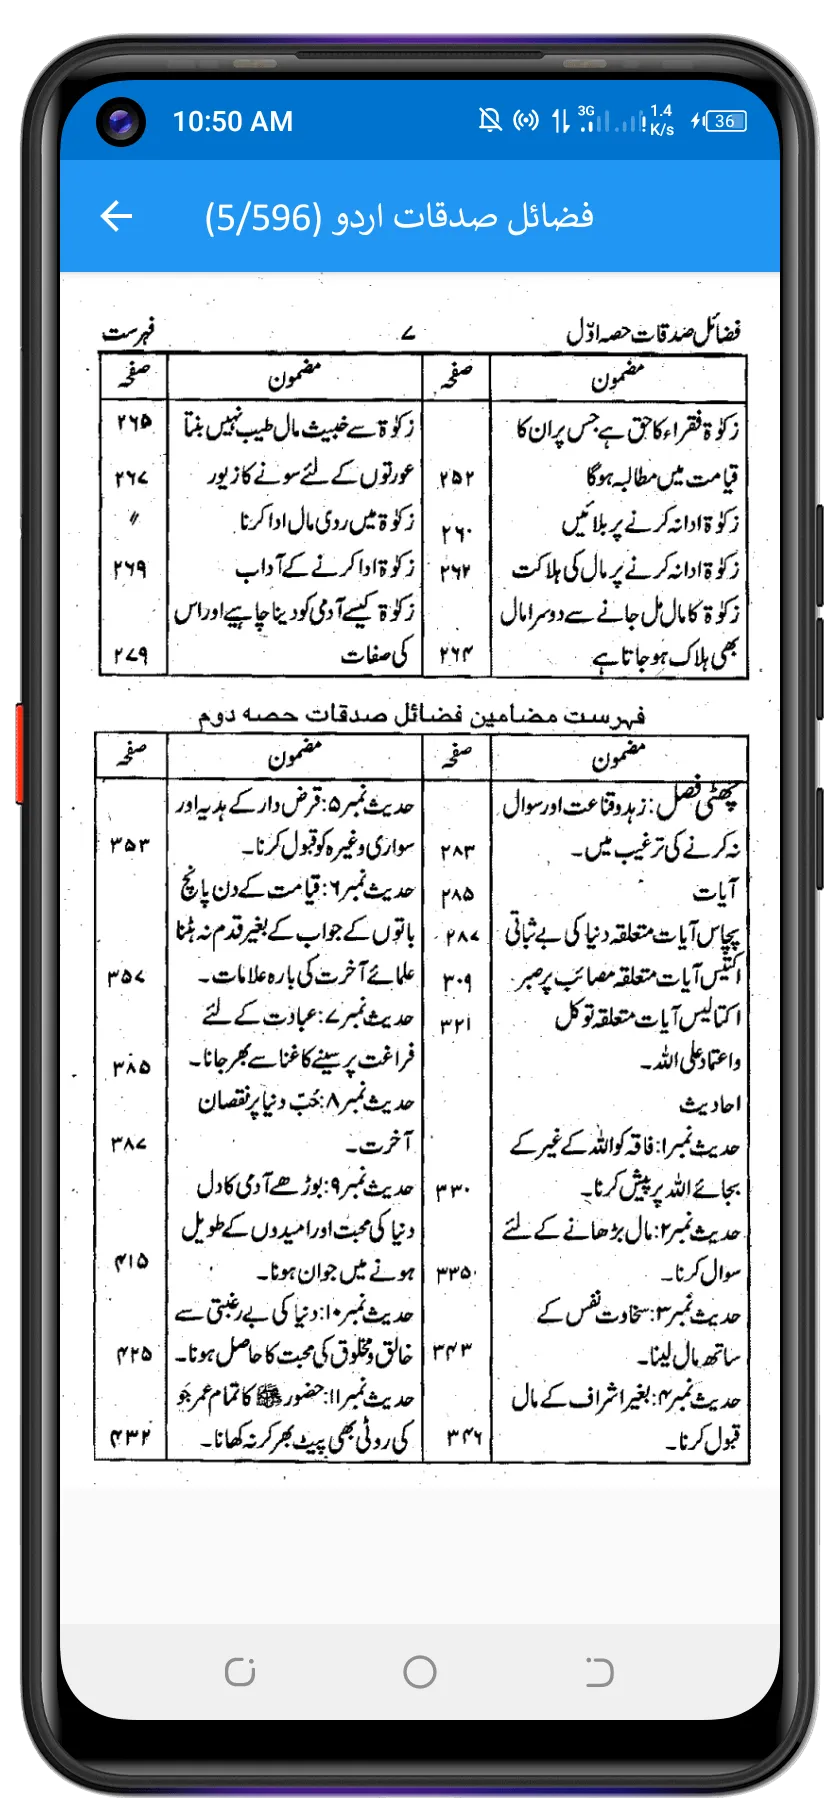 10:50 AM
3G
1.4
K/s
36
فضائل صدقات اردو (5/596)
فضائل صدقات حصہ اوّل
۷
فہرست
مضمون
صفحہ
مضمون
صفحہ
زکوٰۃ فقراء کا حق ہے جس پر ان کا
قیامت میں مطالبہ ہوگا
۲۵۲
زکوٰۃ ادا نہ کرنے پر بلائیں
۲۶۰
زکوٰۃ ادا نہ کرنے پر مال کی ہلاکت
۲۶۲
زکوٰۃ کا مال مل جانے سے دوسرا مال
بھی ہلاک ہو جاتا ہے
۲۶۴
زکوٰۃ سے خبیث مال طیب نہیں بنتا
۲۶۵
عورتوں کے لئے سونے کا زیور
۲۶۷
زکوٰۃ میں ردی مال ادا کرنا
〃
زکوٰۃ ادا کرنے کے آداب
۲۶۹
زکوٰۃ کیسے آدمی کو دینا چاہیے اور اس
کی صفات
۲۷۹
فہرست مضامین فضائل صدقات حصہ دوم
مضمون
صفحہ
مضمون
صفحہ
چھٹی فصل: زہد و قناعت اور سوال
نہ کرنے کی ترغیب میں۔
۲۸۳
آیات
۲۸۵
پچاس آیات متعلقہ دنیا کی بے ثباتی
۲۸۷
اکتیس آیات متعلقہ مصائب پر صبر
۳۰۹
اکتالیس آیات متعلقہ توکل
۳۲۱
واعتماد علی اللہ۔
احادیث
حدیث نمبر۱: فاقہ کو اللہ کے غیر کے
بجائے اللہ پر پیش کرنا۔
۳۳۰
حدیث نمبر۲: مال بڑھانے کے لئے
سوال کرنا۔
۳۳۵
حدیث نمبر۳: سخاوت نفس کے
ساتھ مال لینا۔
۳۴۳
حدیث نمبر۴: بغیر اشراف کے مال
قبول کرنا۔
۳۴۶
حدیث نمبر۵: قرض دار کے ہدیہ اور
سواری وغیرہ کو قبول کرنا۔
۳۵۳
حدیث نمبر۶: قیامت کے دن پانچ
باتوں کے جواب کے بغیر قدم نہ ہٹنا
علمائے آخرت کی بارہ علامات۔
۳۵۷
حدیث نمبر۷: عبادت کے لئے
فراغت پر سینے کا غنا سے بھر جانا۔
۳۸۵
حدیث نمبر۸: حُبّ دنیا پر نقصان
آخرت۔
۳۸۷
حدیث نمبر۹: بوڑھے آدمی کا دل
دنیا کی محبت اور امیدوں کے طویل
ہونے میں جوان ہونا۔
۴۱۵
حدیث نمبر۱۰: دنیا کی بے رغبتی سے
خالق و مخلوق کی محبت کا حاصل ہونا۔
۴۲۵
حدیث نمبر۱۱: حضور ﷺ کا تمام عمر جو
کی روٹی بھی پیٹ بھر کر نہ کھانا۔
۴۳۲